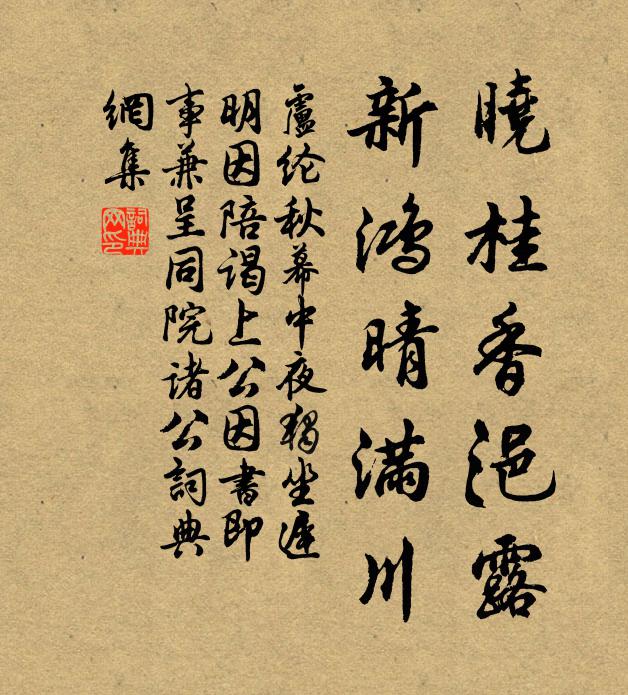 曉桂香浥露
新鴻晴滿川
盧纶秋幕中夜獨坐遲
明因陪谒上公因書即
事兼呈同院诸公詞典
網集
詞典网印